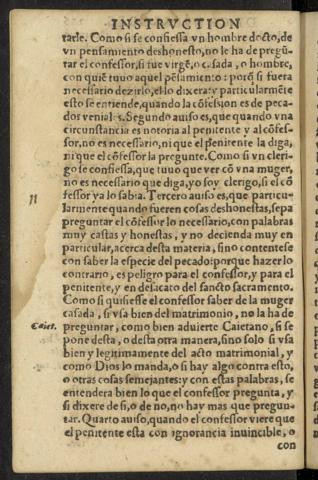 INSTRVCTION
tarle. Como si se confiessa vn hombre docto, de
vn pensamiento deshonesto, no le ha de pregũ-
tar el confessor, si fue virgẽ, o casada, o hombre,
con quiẽ tuuo aquel pẽsamiẽto: porq̃ si fuera
necessario dezirlo, el lo dixera: y particularmẽte
esto se entiende, quando la cõfession es de peca-
dos veniales. Segundo auiso es, que quando vna
circunstancia es notoria al penitente y al cõfes-
sor, no es necessario, ni que el penitente la diga,
ni que el cõfessor la pregunte. Como si vn cleri-
go se confiessa, que tuuo que ver cõ vna muger,
no es necessario que diga, yo soy clerigo, si el cõ
fessor ya lo sabia. Tercero auiso es, que particu-
larmente quando fueren cosas deshonestas, sepa
preguntar el cõfessor lo necessario, con palabras
muy castas y honestas, y no decienda muy en
particular, acerca desta materia, sino contentese
con saber la especie del pecado: porque hazer lo
contrario, es peligro para el confessor, y para el
penitente, y en desacato del sancto sacramento.
Como si quisiesse el confessor saber de la muger
casada, si vsa bien del matrimonio, no la ha de
Caiet. preguntar, como bien aduierte Caietano, si se
pone desta, o desta otra manera, sino solo si vsa
bien y legitimamente del acto matrimonial, y
como Dios lo manda, o si hay algo contra esto,
o otras cosas semejantes: y con estas palabras, se
entendera bien lo que el confessor pregunta, y
si dixere de si, o de no, no hay mas que pregun-
tar. Quarto auiso, quando el confessor viere que
el penitente esta con ignorancia inuincible, o
con